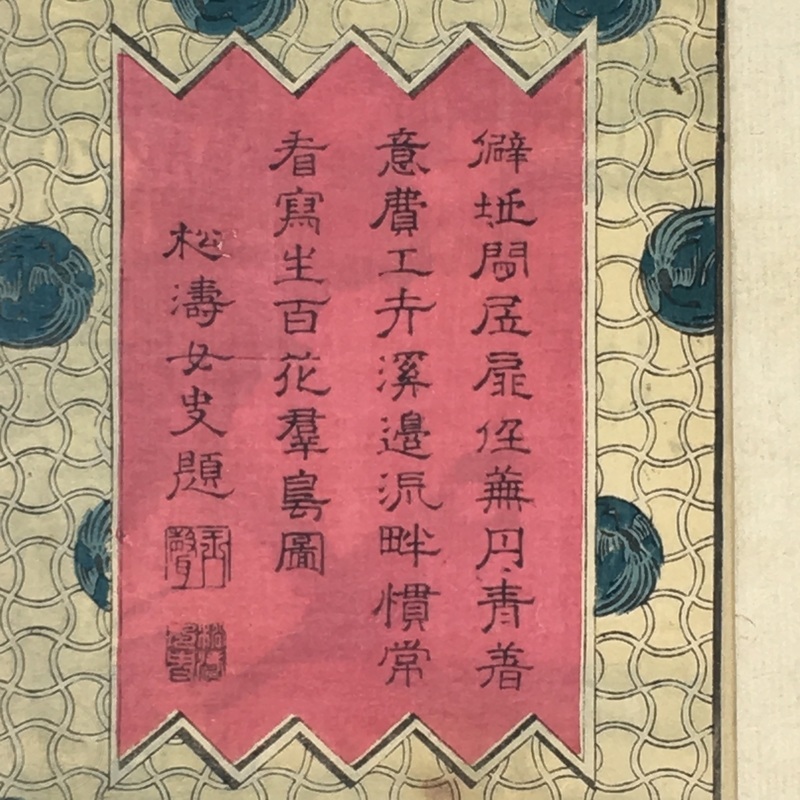 僻地閒居任蕪丹青著
意費工夫溪邊流畔慣常
看寫生百花羣鳥圖
松濤女史題